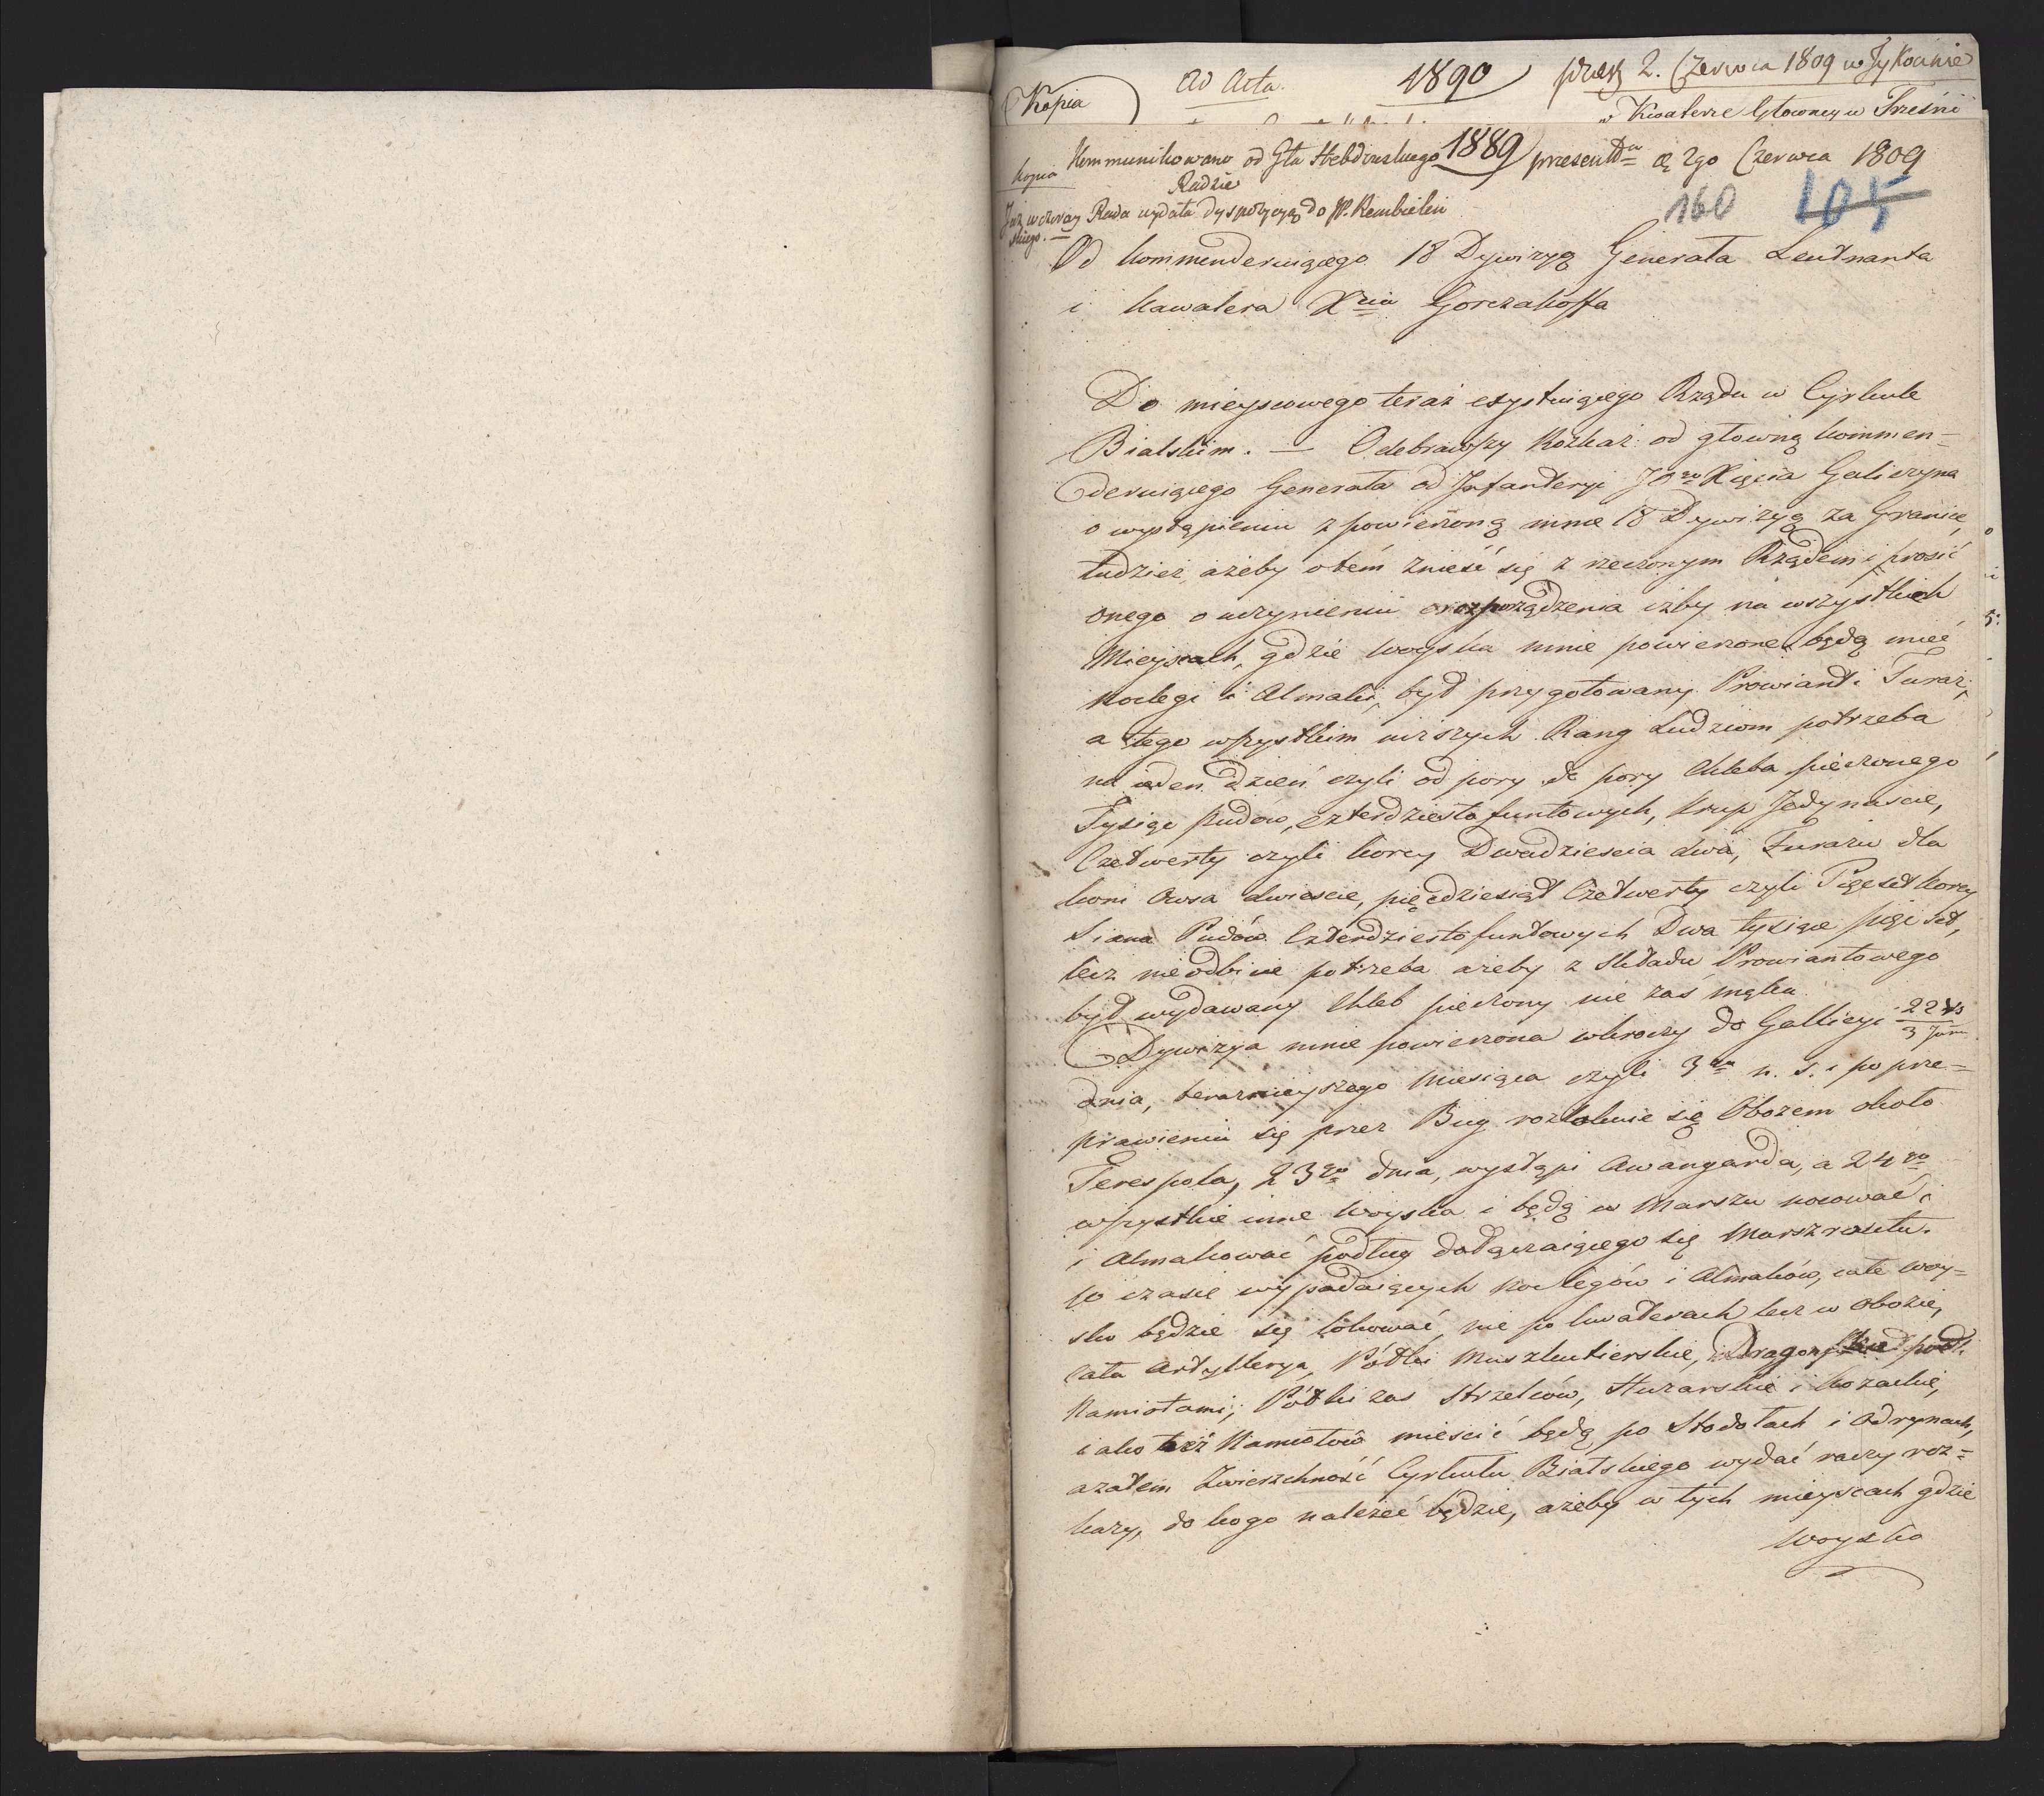 Kopia ad Acta. 1890 präes 2. Czerwca 1809 w Tykocinie
w Kwaterze Głowney w Trześni
kopia Kommunikowano od Gła Hebdowskiego 1889 presentt d 2go Czerwca 1809
Radzie
Już wczoray Rada wydała dyspozycyą do JP. Rembielińskiego. —
160 105
Od kommenderuiącego 18 Dywizyą Generała Leutnanta
i kawalera Xcia Gorczakoffa
Do mieyscowego teraz exystuiącego Rządu w Cyrkule
Bialskim. — Odebrawszy Rozkaz od głowną kommen=
deruiącego Generała od Infanteryi JOgo Xięcia Galiczyna
o wystąpieniu z powierzoną mnie 18 Dywizyą za Granicę,
tudzież ażeby o tém znieść się z rzeczonym Rządem i prosić
onego o uczynienie rozporządzenia iżby na wszystkich
Mieyscach, gdzie woyska mnie powierzone będą mieć
Noclegi i Almaki, był przygotowany Prowiant i Furaż,
a tego wszystkim niższych Rang Ludziom potrzeba
na ieden dzień czyli od pory do pory Chleba pieczonego
Tysiąc Pudów, czterdziesto funtowych, krup Jedynascie,
Czetwerty czyli korcy Dwadziescia dwa, Furażu dla
koni Owsa dwiescie, pięćdziesiąt Czetwerty czyli Pięcset korcy
Siana Pudów Czterdziesto funtowych Dwa tysiące pięć set,
lecz nieodbicie potrzeba ażeby z składu Prowiantowego
był wydawany Chleb pieczony nie zaś mąka.
Dywizya mnie powierzona wkroczy do Gallicyi 22
3 Jun
dnia, teraznieyszego Miesiąca czyli 3go n. s. i po prze=
prawieniu się przez Bug rozłokuie się Obozem około
Terespola, 23go dnia, wystąpi Awangarda, a 24go
wszystkie inne Woyska i będą w Marszu nocować i
i Almakować podług dołączaiącego się Marszrutu.
po czasie wypadaiących Noclegów i Almaków, całe woy=
sko będzie się lokować, nie po kwaterach lecz w obozie,
Cała Artylleryja, Półki Muszkutierskie, i Dragońskie pod
Namiotami, Półki zas Strzelców, Huzarskie i kozackie,
iako bez Namiotów mieścić będą po Stodołach i Odrynach,
azatem Zwierzchność Cyrkułu Bialskiego wydać raczy roz=
kazy, do kogo należeć będzie, ażeby w tych mieyscach gdzie
woysko